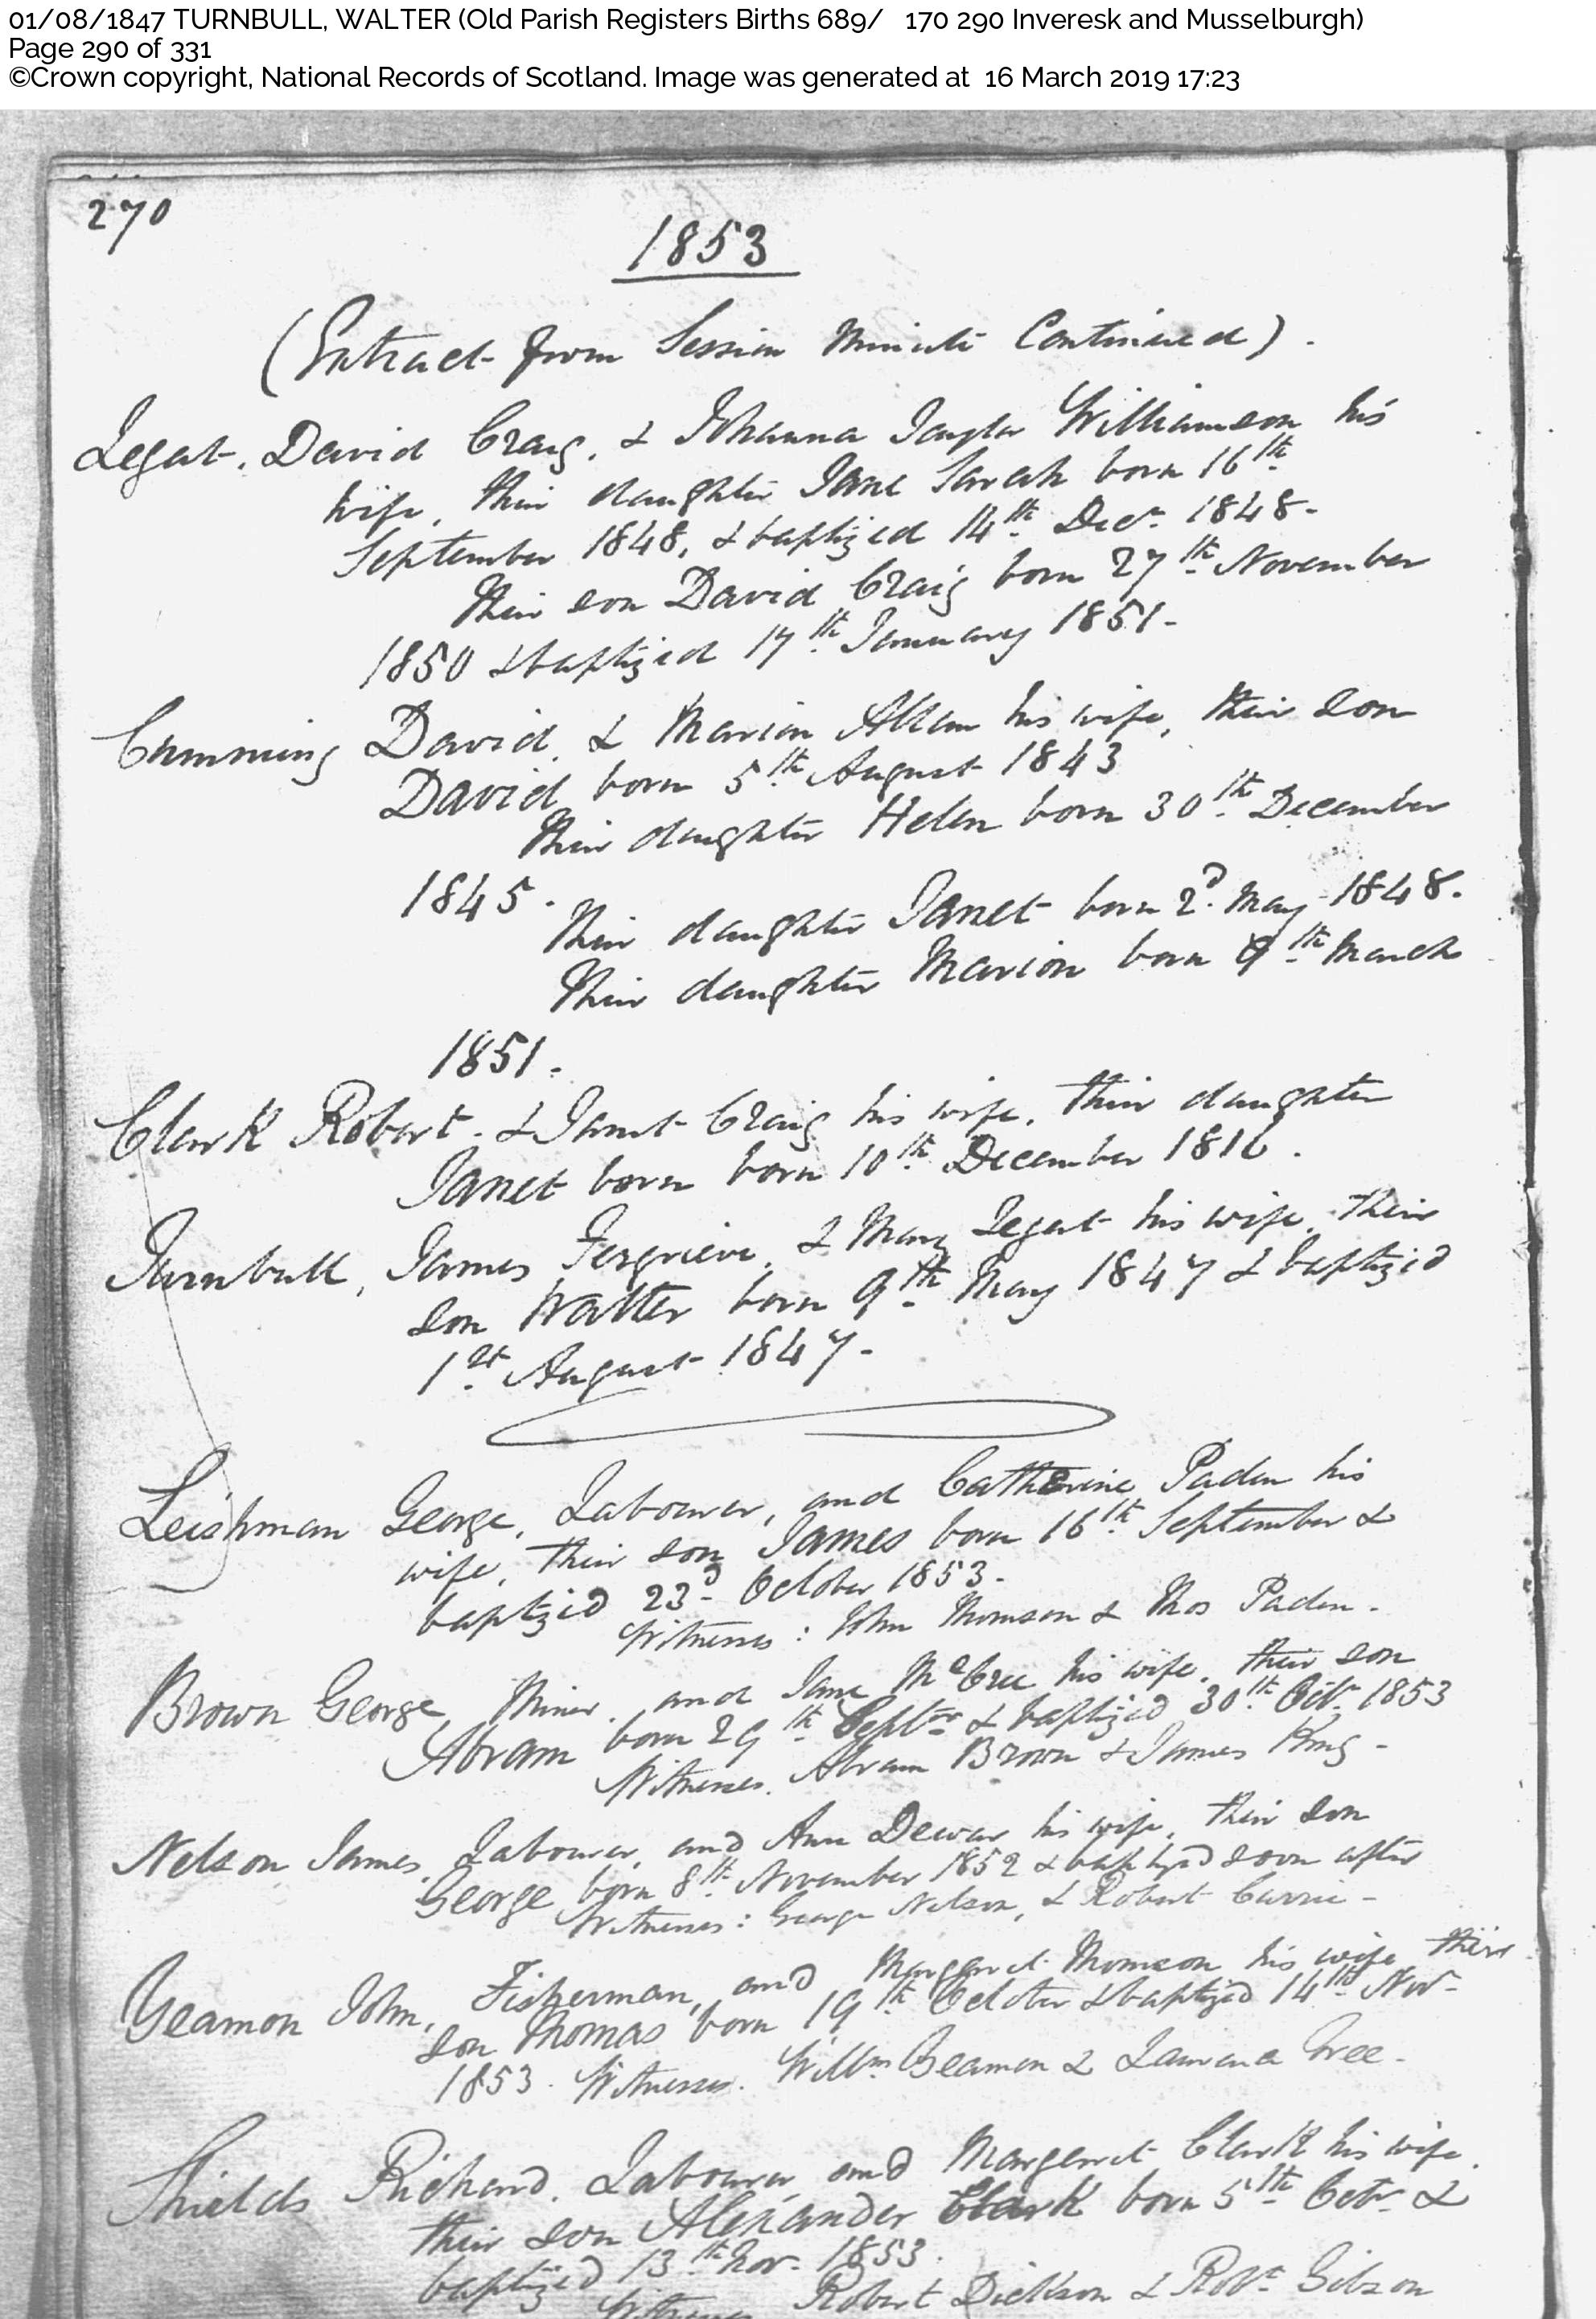 01/08/1847 TURNBULL, WALTER (Old Parish Registers Births 689/ 170 290 Inveresk and Musselburgh)
Page 290 of 331
©Crown copyright, National Records of Scotland. Image was generated at 16 March 2019 17:23
270
1853
(Extract from Session Minute Continued).
Legat, David Craig, & Johanna Taylor Williamson his
wife, their daughter Jane Sarah born 16th
September 1848, & baptized 14th Decr 1848-
Their son David Craig born 27th November
1850 & baptized 17th January 1851-
Cumming David, & Marion Allan his wife, their son
David born 5th August 1843
Their daughter Helen born 30th December
1845.
Their daughter Janet born 2d May 1848.
Their daughter Marion born 9th March
1851.
Clark Robert & Janet Craig his wife, their daughter
Janet born born 10th December 1816.
Turnbull, James Fergrieve, & Mary Legat his wife, their
son Walter born 9th May 1847 & baptized
1st August 1847-
Leishman George, Labourer, and Catherine Paden his
wife, their son James born 16th September &
baptized 23d October 1853-
Witnesses: John Thomson & Thos Paden-
Brown George, Miner, and Jane McCree his wife, their son
Abram born 29th Septr & baptized 30th Octr 1853
Witnesses. Abram Brown & James King-
Nelson James, Labourer, and Ann Dewar his wife, their son
George born 8th November 1852 & baptized soon after
Witnesses: George Nelson, & Robert Currie-
Yeamon John, Fisherman, and Margaret Thomson his wife their
son Thomas born 19th October & baptized 14th Novr
1853. Witnesses. Willm Yeamon &
Shields Richard, Labourer, and Margaret Clark his wife,
their son Alexander Clark born 5th Octr &
baptized 13th Nov. 1853.
Witnesses Robert Dickson & Robt Gibson